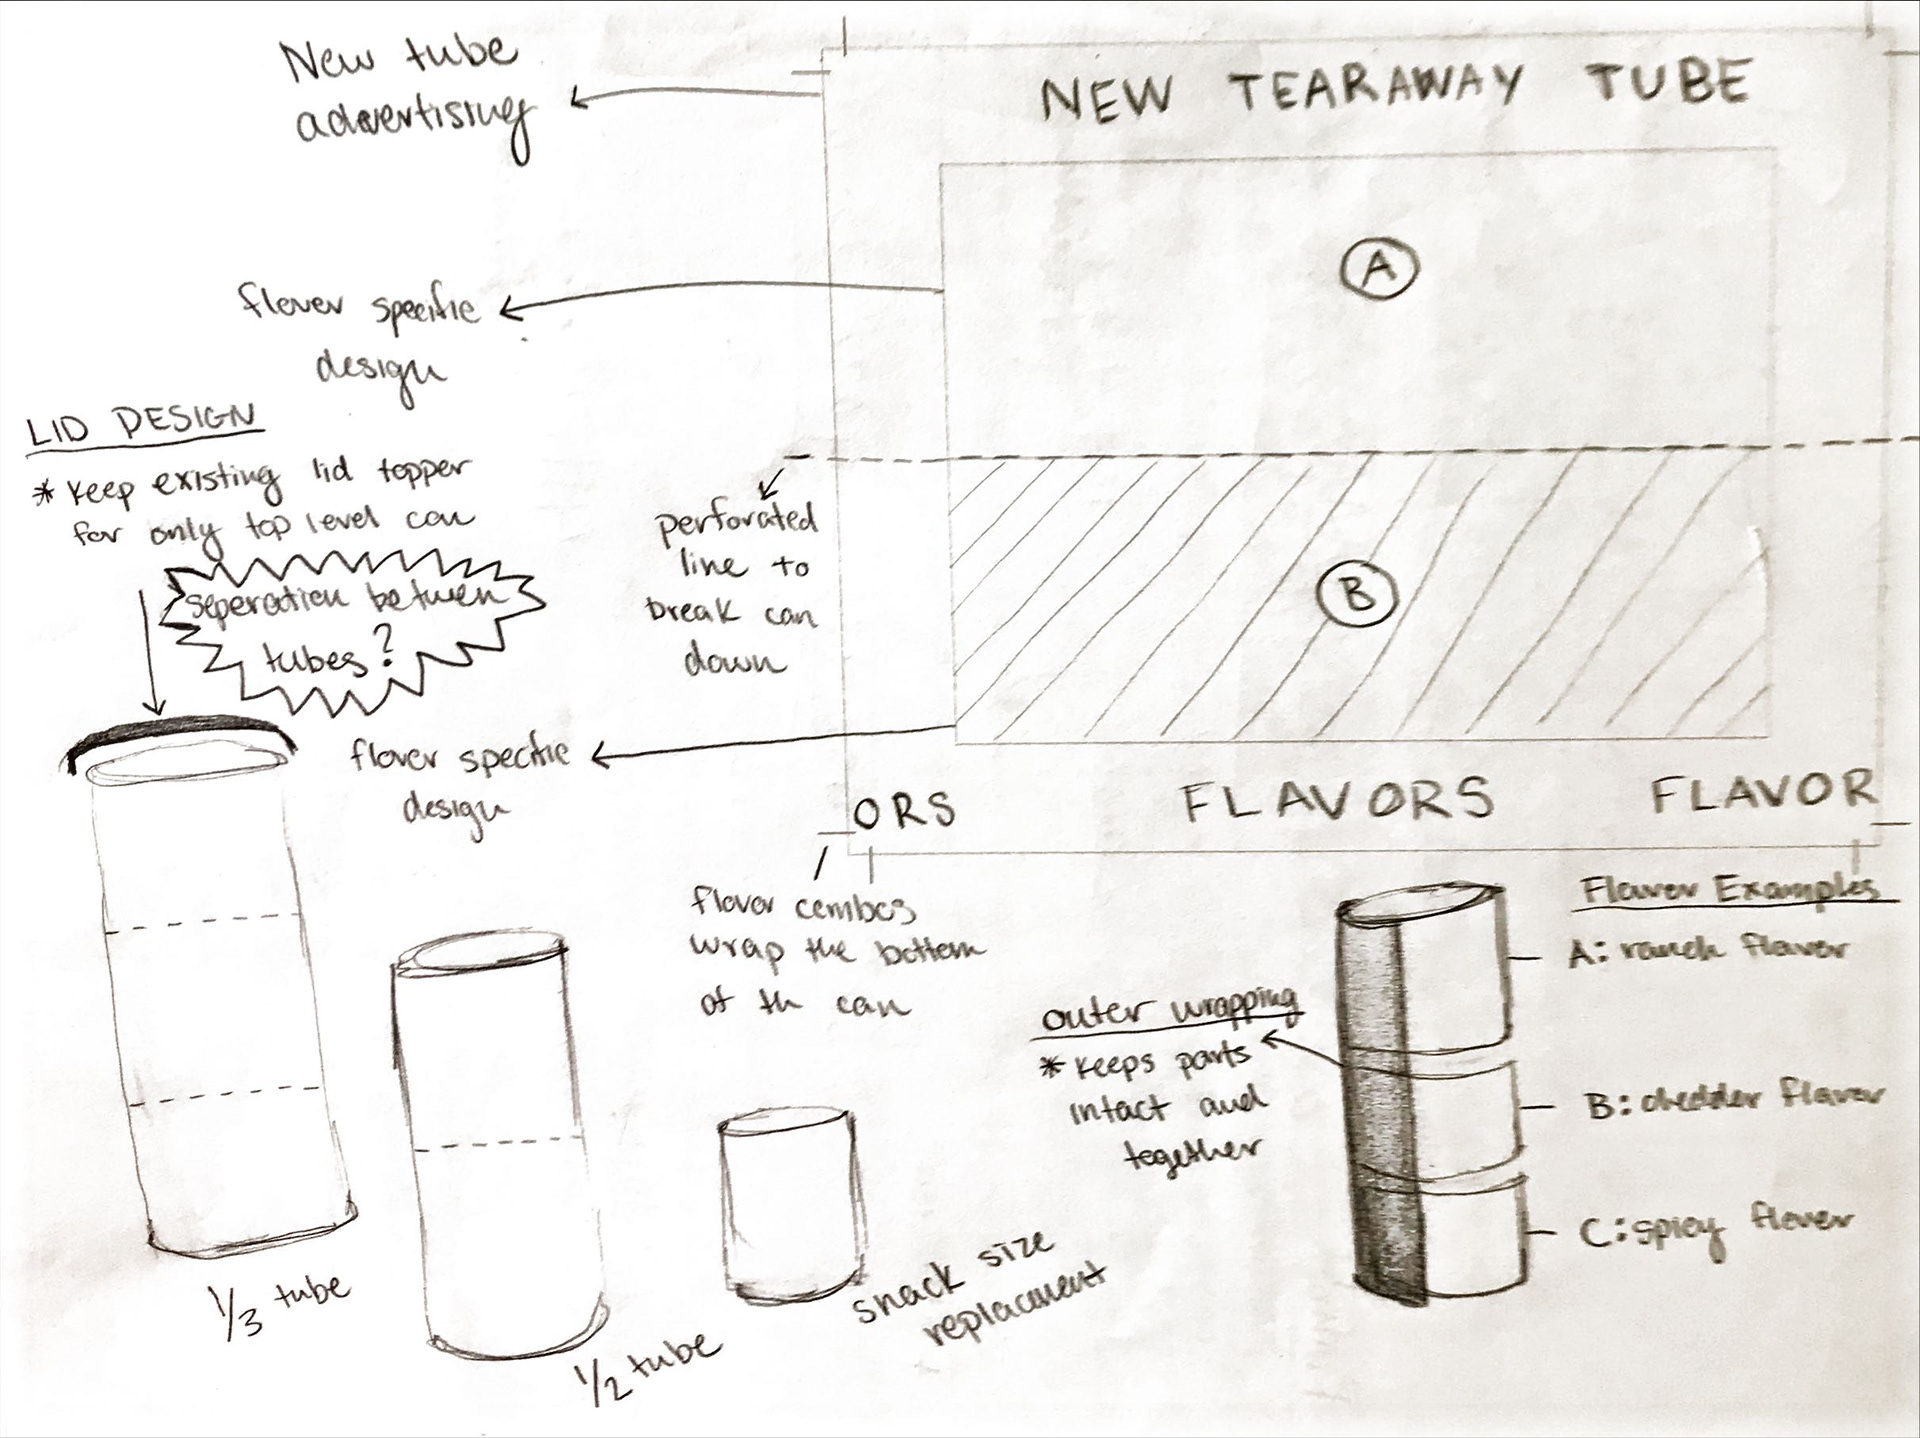 New tube
advertising
NEW TEARAWAY TUBE
A
flavor specific
design
LID DESIGN
* Keep existing lid topper
for only top level can
seperation between
tubes?
perforated
line to
break can
down
B
flavor specific
design
ORS FLAVORS FLAVOR
flavor combos
wrap the bottom
of th can
Flavor Examples
A: ranch flavor
outer wrapping
* Keeps parts
intact and
together
B: chedder flavor
C: spicy flavor
1/3 tube
1/2 tube
snack size
replacment